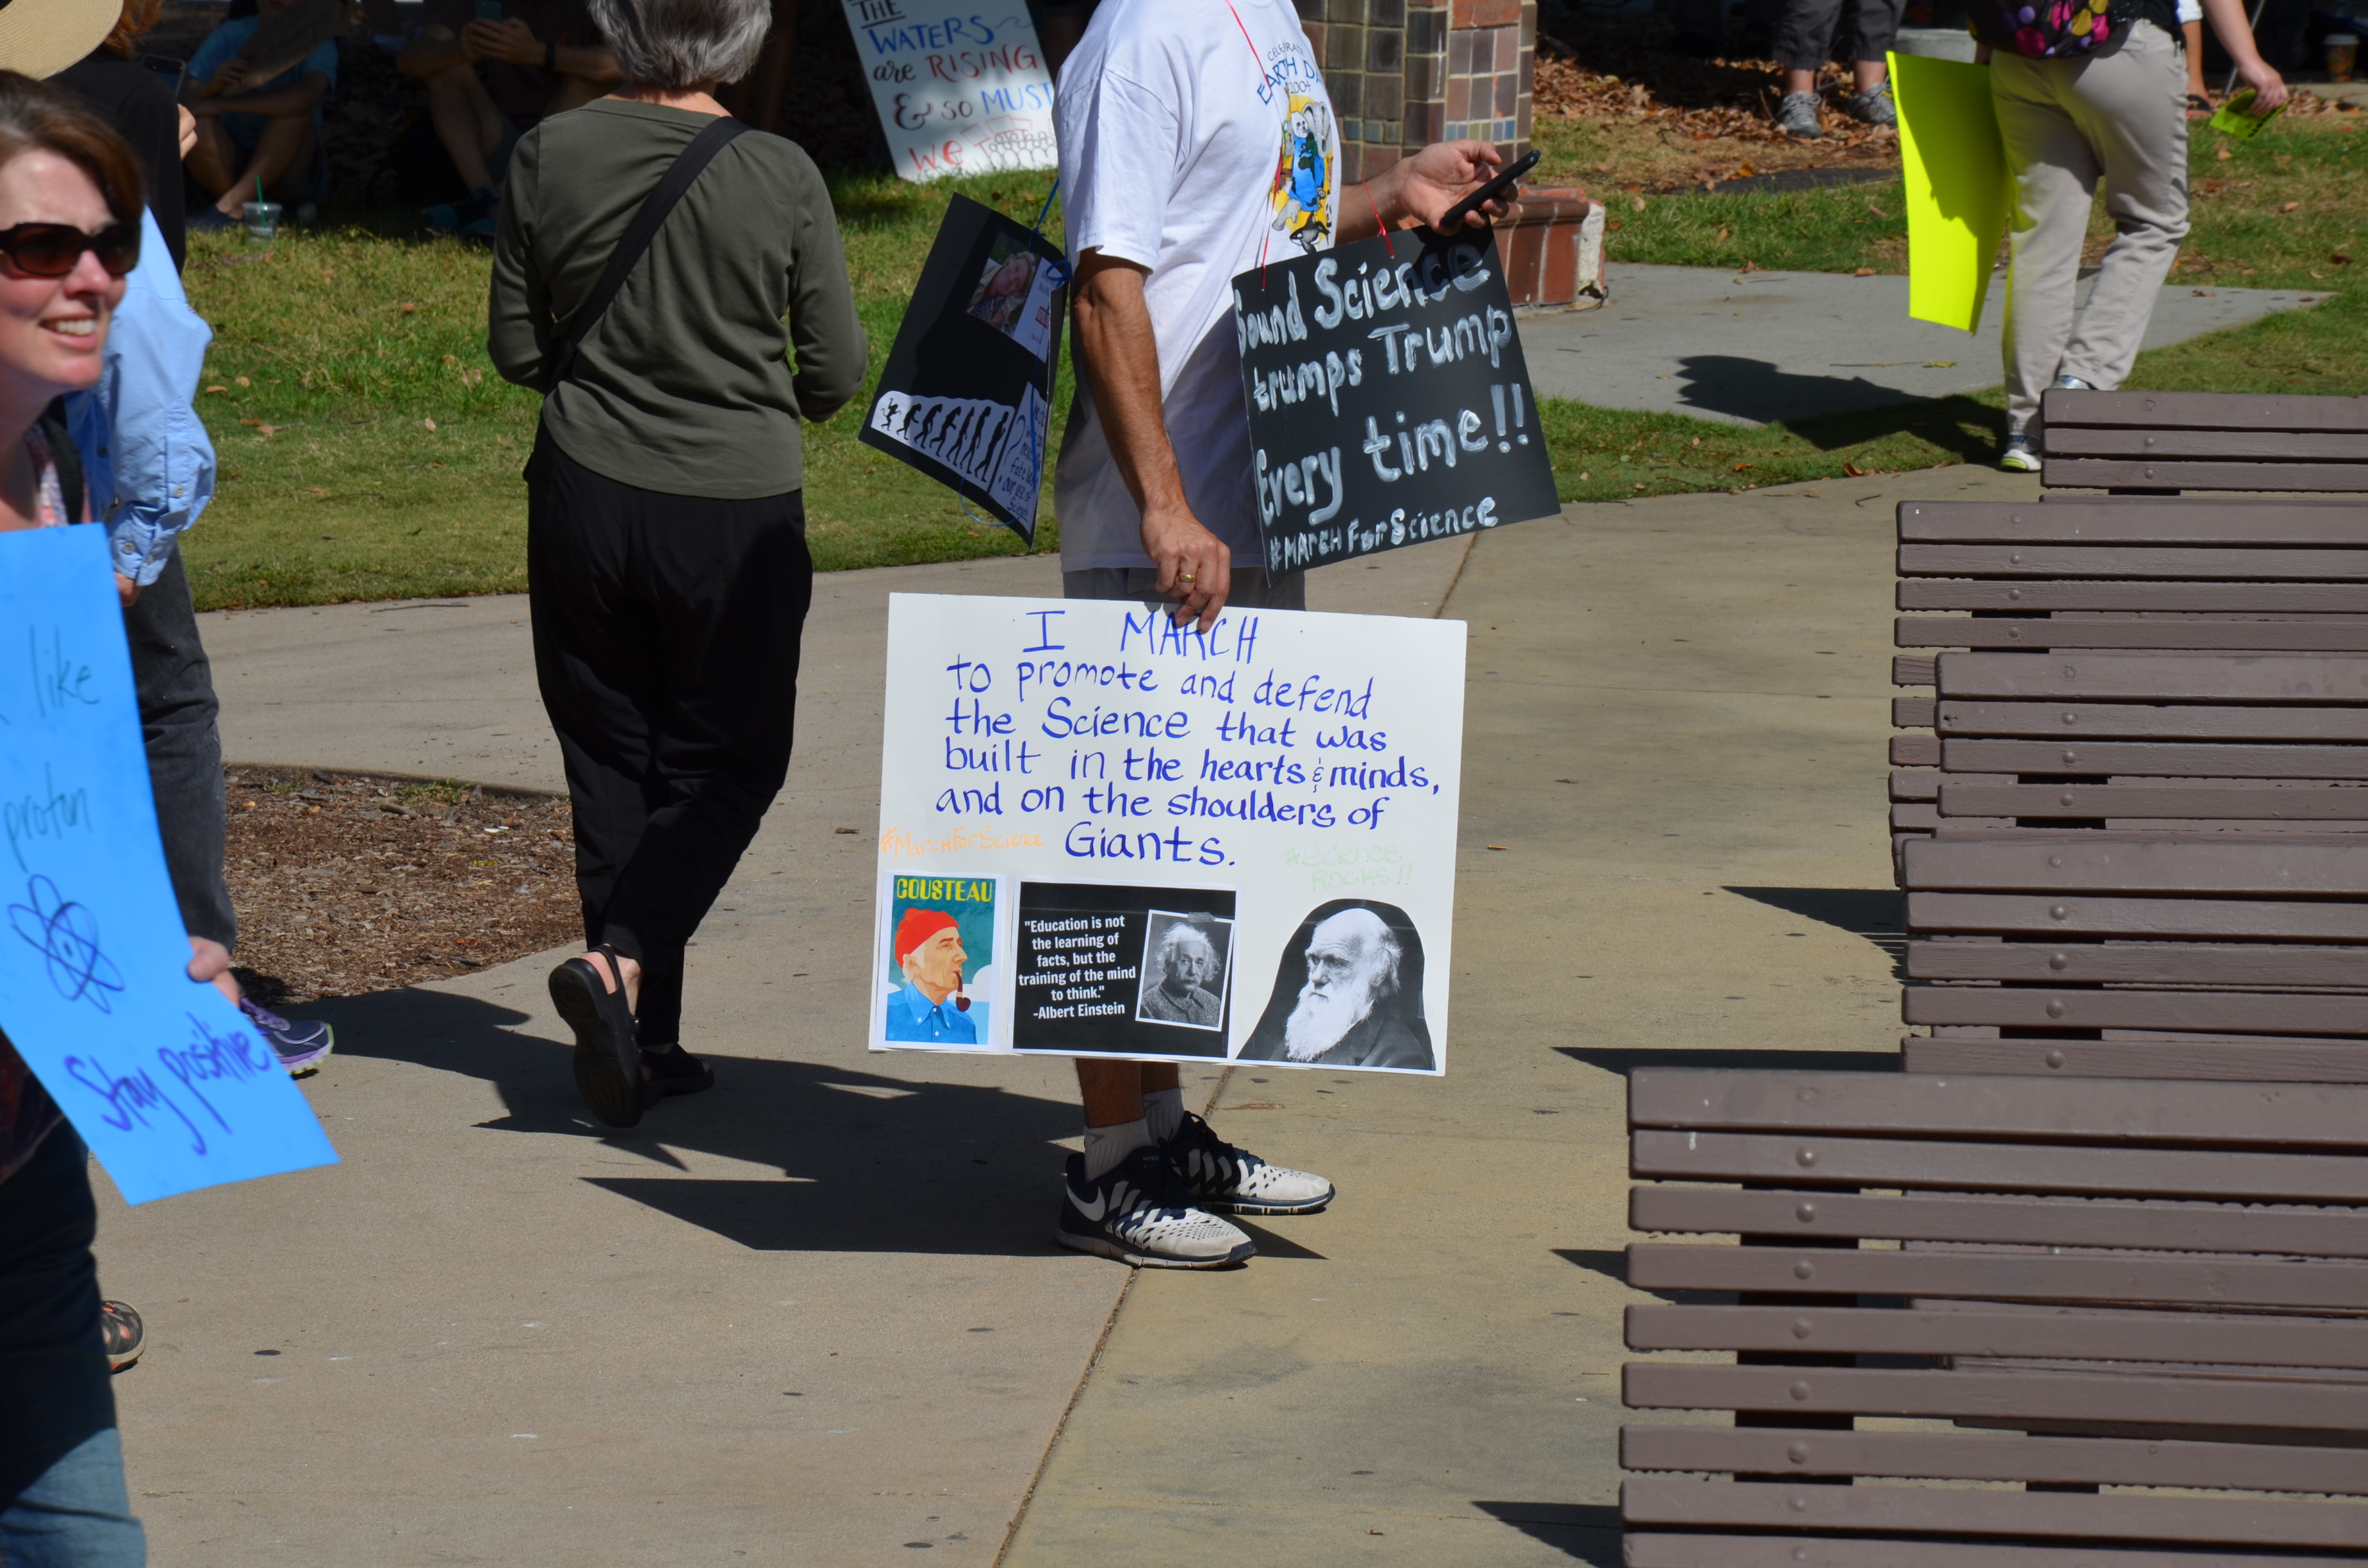 THE
WATERS
are RISING
& so MUST
WE
CELEBRATE
EARTH DA
2004
Sound Science
trumps Trump
Every time!!
#MARCHForScience
I MARCH
to promote and defend
the Science that was
built in the hearts & minds,
and on the shoulders of
Giants.
#MarchForScience
#Science
Rocks!!
COUSTEAU
"Education is not
the learning of
facts, but the
training of the mind
to think."
-Albert Einstein
like
proton
Stay positive
our use of
Science